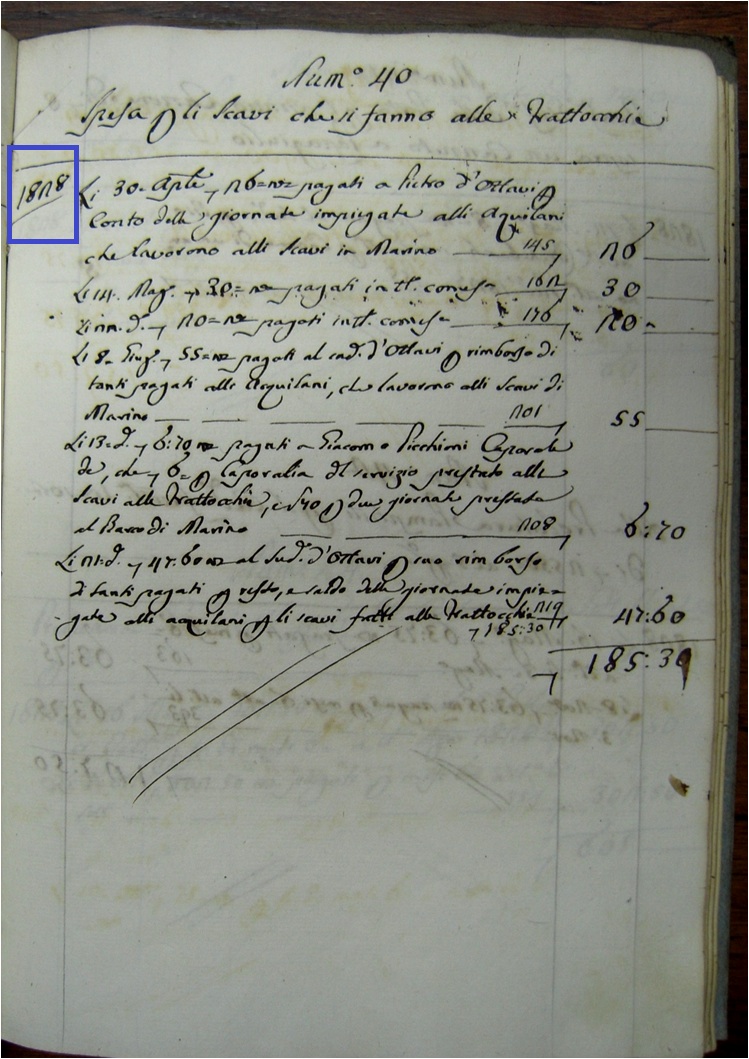 Num.º 40
Spesa p li Scavi che si fanno alle Frattocchie
1828
Li 30. Aple 26= me pagati a Pietro d'Ottavi p
Conto delle giornate impiegate alli Aquilani
che lavorono alli Scavi in Marino 145 26
Li 14. Mag. 30= me pagati in tt. come sa 162 30
d. 20= me pagati in tt. come sa 176 20
Li 8. Giug. 55= me pagati al sud. d'Ottavi p rimborso di
tanti pagati alli Aquilani, che lavorono alli Scavi di
Marino 201 55
Li 13. d. 6:70 me pagati a Giacomo Picchioni Caporale
de, che 6= p Caporalia del servizio prestato alli
Scavi alle Frattocchie, e p due giornate prestate
al Barco di Marino 208 6:70
Li 21. d. 47:60 me al Sud. d'Ottavi p suo rimborso
di tanti pagati p resto, e saldo delle giornate impie=
gate alli aquilani p li scavi fatti alle Frattocchie 219 47:60
185:30
185:30